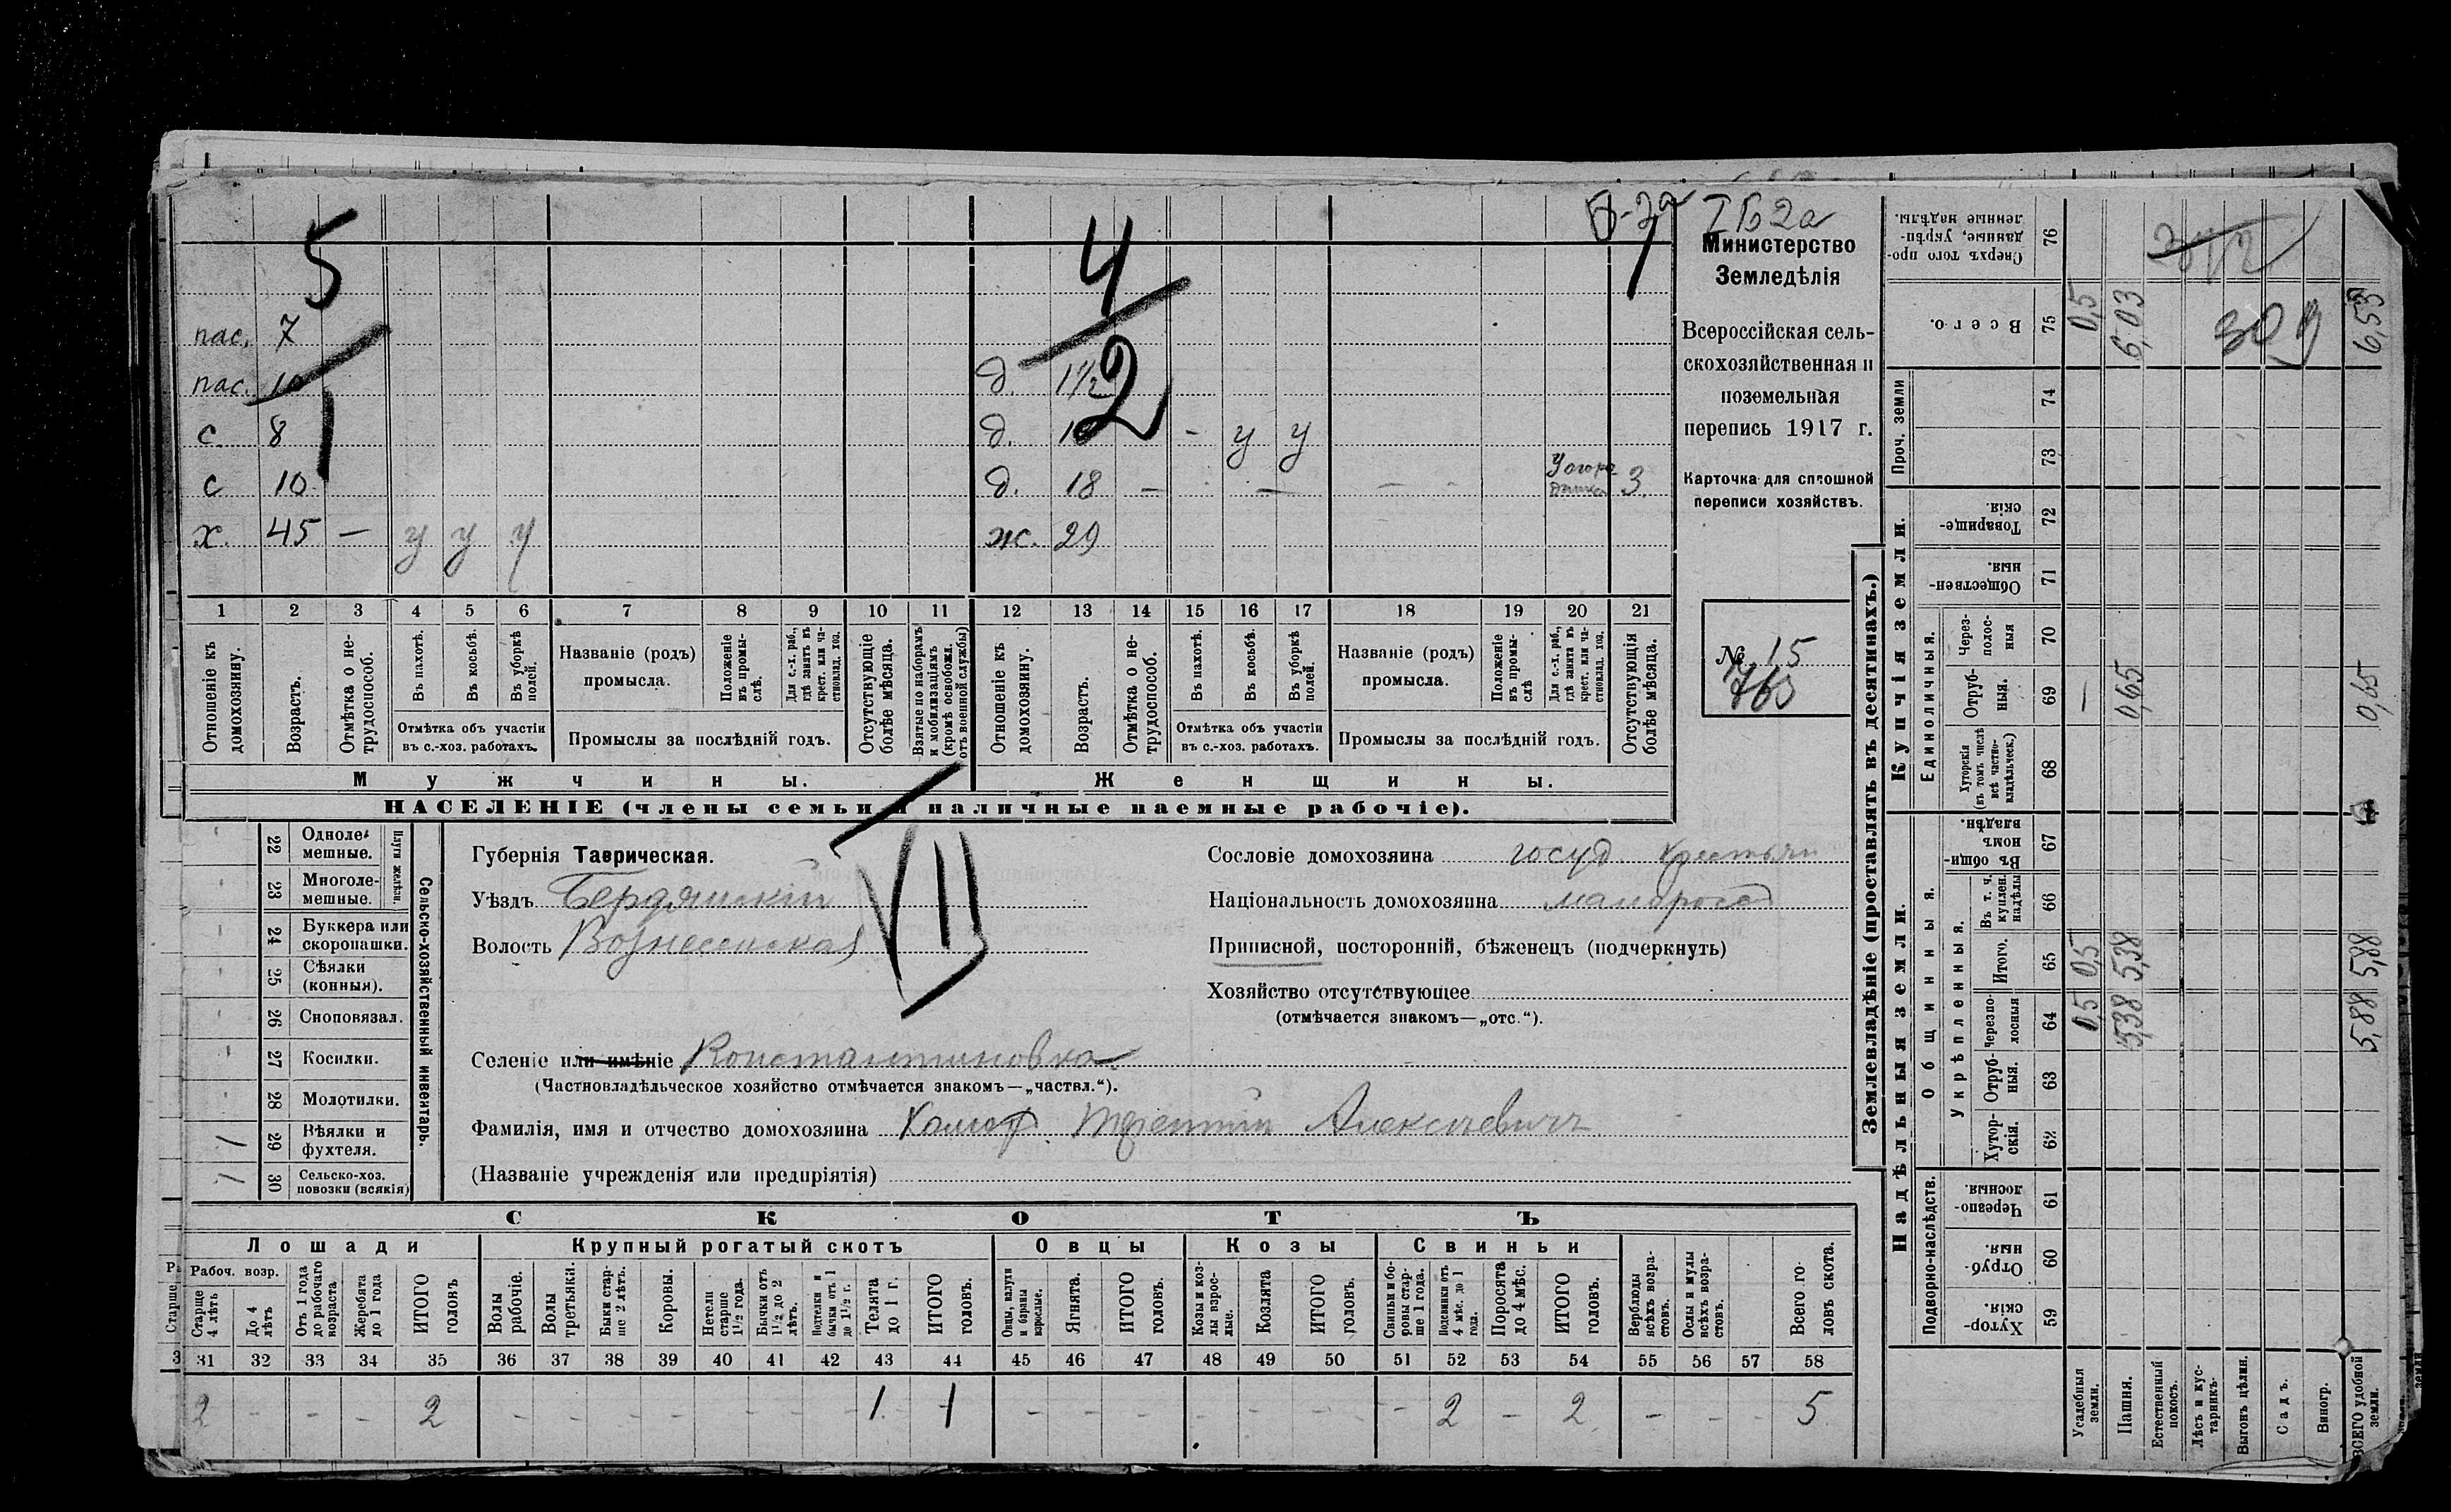 I Б 2а
Министерство
Земледѣлія
Всероссійская сель-
скохозяйственная и
поземельная
перепись 1917 г.
Карточка для сплошной
переписи хозяйствъ.
№ 15
5
1
4
2
пас. 7
пас. 10
с 8
с 10
х. 45 — у у у
д. 1½
д. - у у
д. 18 — — — - 3
ж. 29
1 2 3 4 5 6 7 8 9 10 11 12 13 14 15 16 17 18 19 20 21
Отношеніе къ домохозяину.
Возрастъ.
Отмѣтка о не-трудоспособ.
Въ пахотѣ.
Въ косьбѣ.
Въ уборкѣ полей.
Отмѣтка объ участіи въ с.-хоз. работахъ.
Названіе (родъ) промысла.
Положеніе въ промы-слѣ.
Для с.-х. раб., гдѣ занятъ въ крест. или ча-стновлад. хоз.
Промыслы за послѣдній годъ.
Отсутствующіе болѣе мѣсяца.
Взятые по наборамъ и мобилизаціямъ (кромѣ освобожд. отъ военной службы)
Отношеніе къ домохозяину.
Возрастъ.
Отмѣтка о не-трудоспособ.
Въ пахотѣ.
Въ косьбѣ.
Въ уборкѣ полей.
Отмѣтка объ участіи въ с.-хоз. работахъ.
Названіе (родъ) промысла.
Положеніе въ промы-слѣ
Для с.-х. раб., гдѣ занята въ крест. или ча-стновлад. хоз.
Промыслы за послѣдній годъ.
Отсутствующія болѣе мѣсяца.
Мужчины.
Женщины.
НАСЕЛЕНІЕ (члены семьи и наличные наемные рабочіе).
Сельско-хозяйственный инвентарь.
Плуги желѣзн.
22 Одноле-мешные.
23 Многоле-мешные.
24 Буккера или скоропашки.
25 Сѣялки (конныя).
26 Сноповязал.
27 Косилки.
28 Молотилки.
29 Вѣялки и фухтеля. 1
30 Сельско-хоз. повозки (всякія) 1
VII
Губернія Таврическая.
Уѣздъ Бердянскій
Волость Вознесенская
Селеніе или имѣніе Константиновка
(Частновладѣльческое хозяйство отмѣчается знакомъ—„частвл.“).
Фамилія, имя и отчество домохозяина Терентій Алексѣевичъ
(Названіе учрежденія или предпріятія)
Сословіе домохозяина госуд. крестьян
Національность домохозяина малоросс
Приписной, посторонній, бѣженецъ (подчеркнуть)
Хозяйство отсутствующее
(отмѣчается знакомъ—„отс.“).
СКОТЪ
Лошади
Крупный рогатый скотъ
Овцы
Козы
Свиньи
Рабоч. возр.
Старше 4 лѣтъ
До 4 лѣтъ
Отъ 1 года до рабочаго возраста
Жеребята до 1 года
ИТОГО головъ
Волы рабочіе.
Волы третьяки.
Быки стар-ше 2 лѣтъ.
Коровы.
Нетели старше 1½ года.
Бычки отъ 1½ до 2 лѣтъ.
Подтелки и бычки отъ 1 до 1½ г.
Телята до 1 г.
ИТОГО головъ.
Овцы, валухи и бараны взрослые.
Ягнята.
ИТОГО головъ.
Козы и коз-лы взрос-лые.
Козлята
ИТОГО головъ.
Свиньи и бо-ровы стар-ше 1 года.
Подсвинки отъ 4 мѣс. до 1 года.
Поросята до 4 мѣс.
ИТОГО головъ.
Верблюды всѣхъ возра-стовъ.
Ослы и мулы всѣхъ возра-стовъ.
Всего го-ловъ скота.
31 32 33 34 35 36 37 38 39 40 41 42 43 44 45 46 47 48 49 50 51 52 53 54 55 56 57 58
2 - - - 2 - - - - - - - 1 1 - - - - - - - 2 - 2 - - - 5
Землевладѣніе (проставлять въ десятинахъ.)
Надѣльныя земли.
Купчія земли.
Проч. земли
Подворно-наслѣдств.
Общинныя.
Укрѣпленныя.
Единоличныя.
Сверхъ того про-данные, укрѣп-ленные надѣлы. 76
Всего. 75 0,5 6,03 6,53
74
73
Товарище-скія. 72
Обществен-ныя. 71
Через-полос-ныя 70
Отруб-ныя. 69 — 0,65 0,65
Хуторскія (въ томъ числѣ всѣ частно-владѣльческ.) 68
Въ общин-номъ владѣн. 67
Въ т. ч. куплен. надѣлы 66
Итого. 65 0,5 5,38 5,88
Черезпо-лосныя 64 0,5 5,38 5,88
Отруб-ныя. 63
Хутор-скія. 62
Черезпо-лосныя. 61
Отруб-ныя. 60
Хутор-скія. 59
Усадебныя земли.
Пашня.
Естественный покосъ.
Лѣсъ и кус-тарникъ.
Выгонъ цѣлин.
Садъ.
Виногр.
ВСЕГО удобной земли.